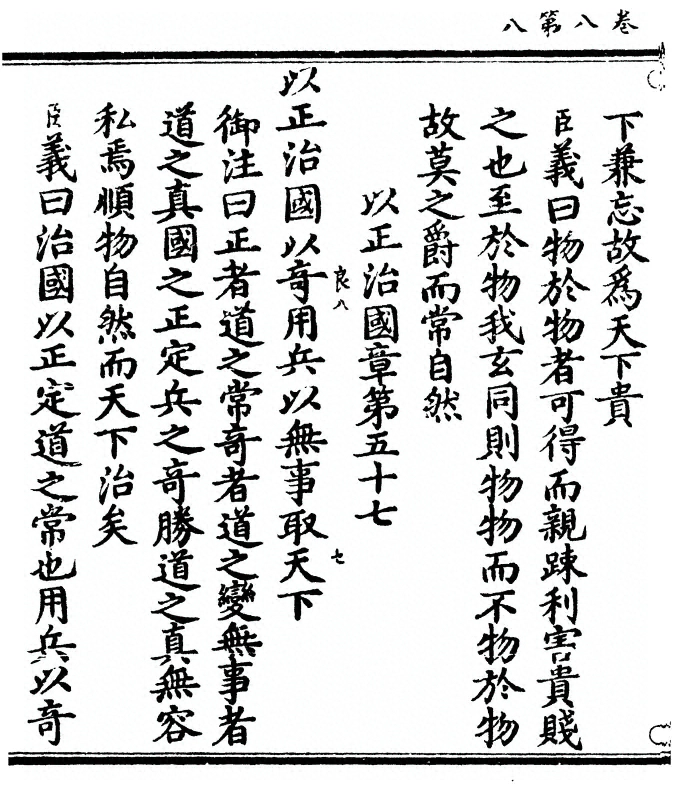 卷八第八
下兼忘故爲天下貴
臣義曰物於物者可得而親踈利害貴賤
之也至於物我玄同則物物而不物於物
故莫之爵而常自然
以正治國章第五十七
良八
七
以正治國以竒用兵以無事取天下
御注曰正者道之常竒者道之變無事者
道之真國之正定兵之竒勝道之真無容
私焉順物自然而天下治矣
臣義曰治國以正定道之常也用兵以竒